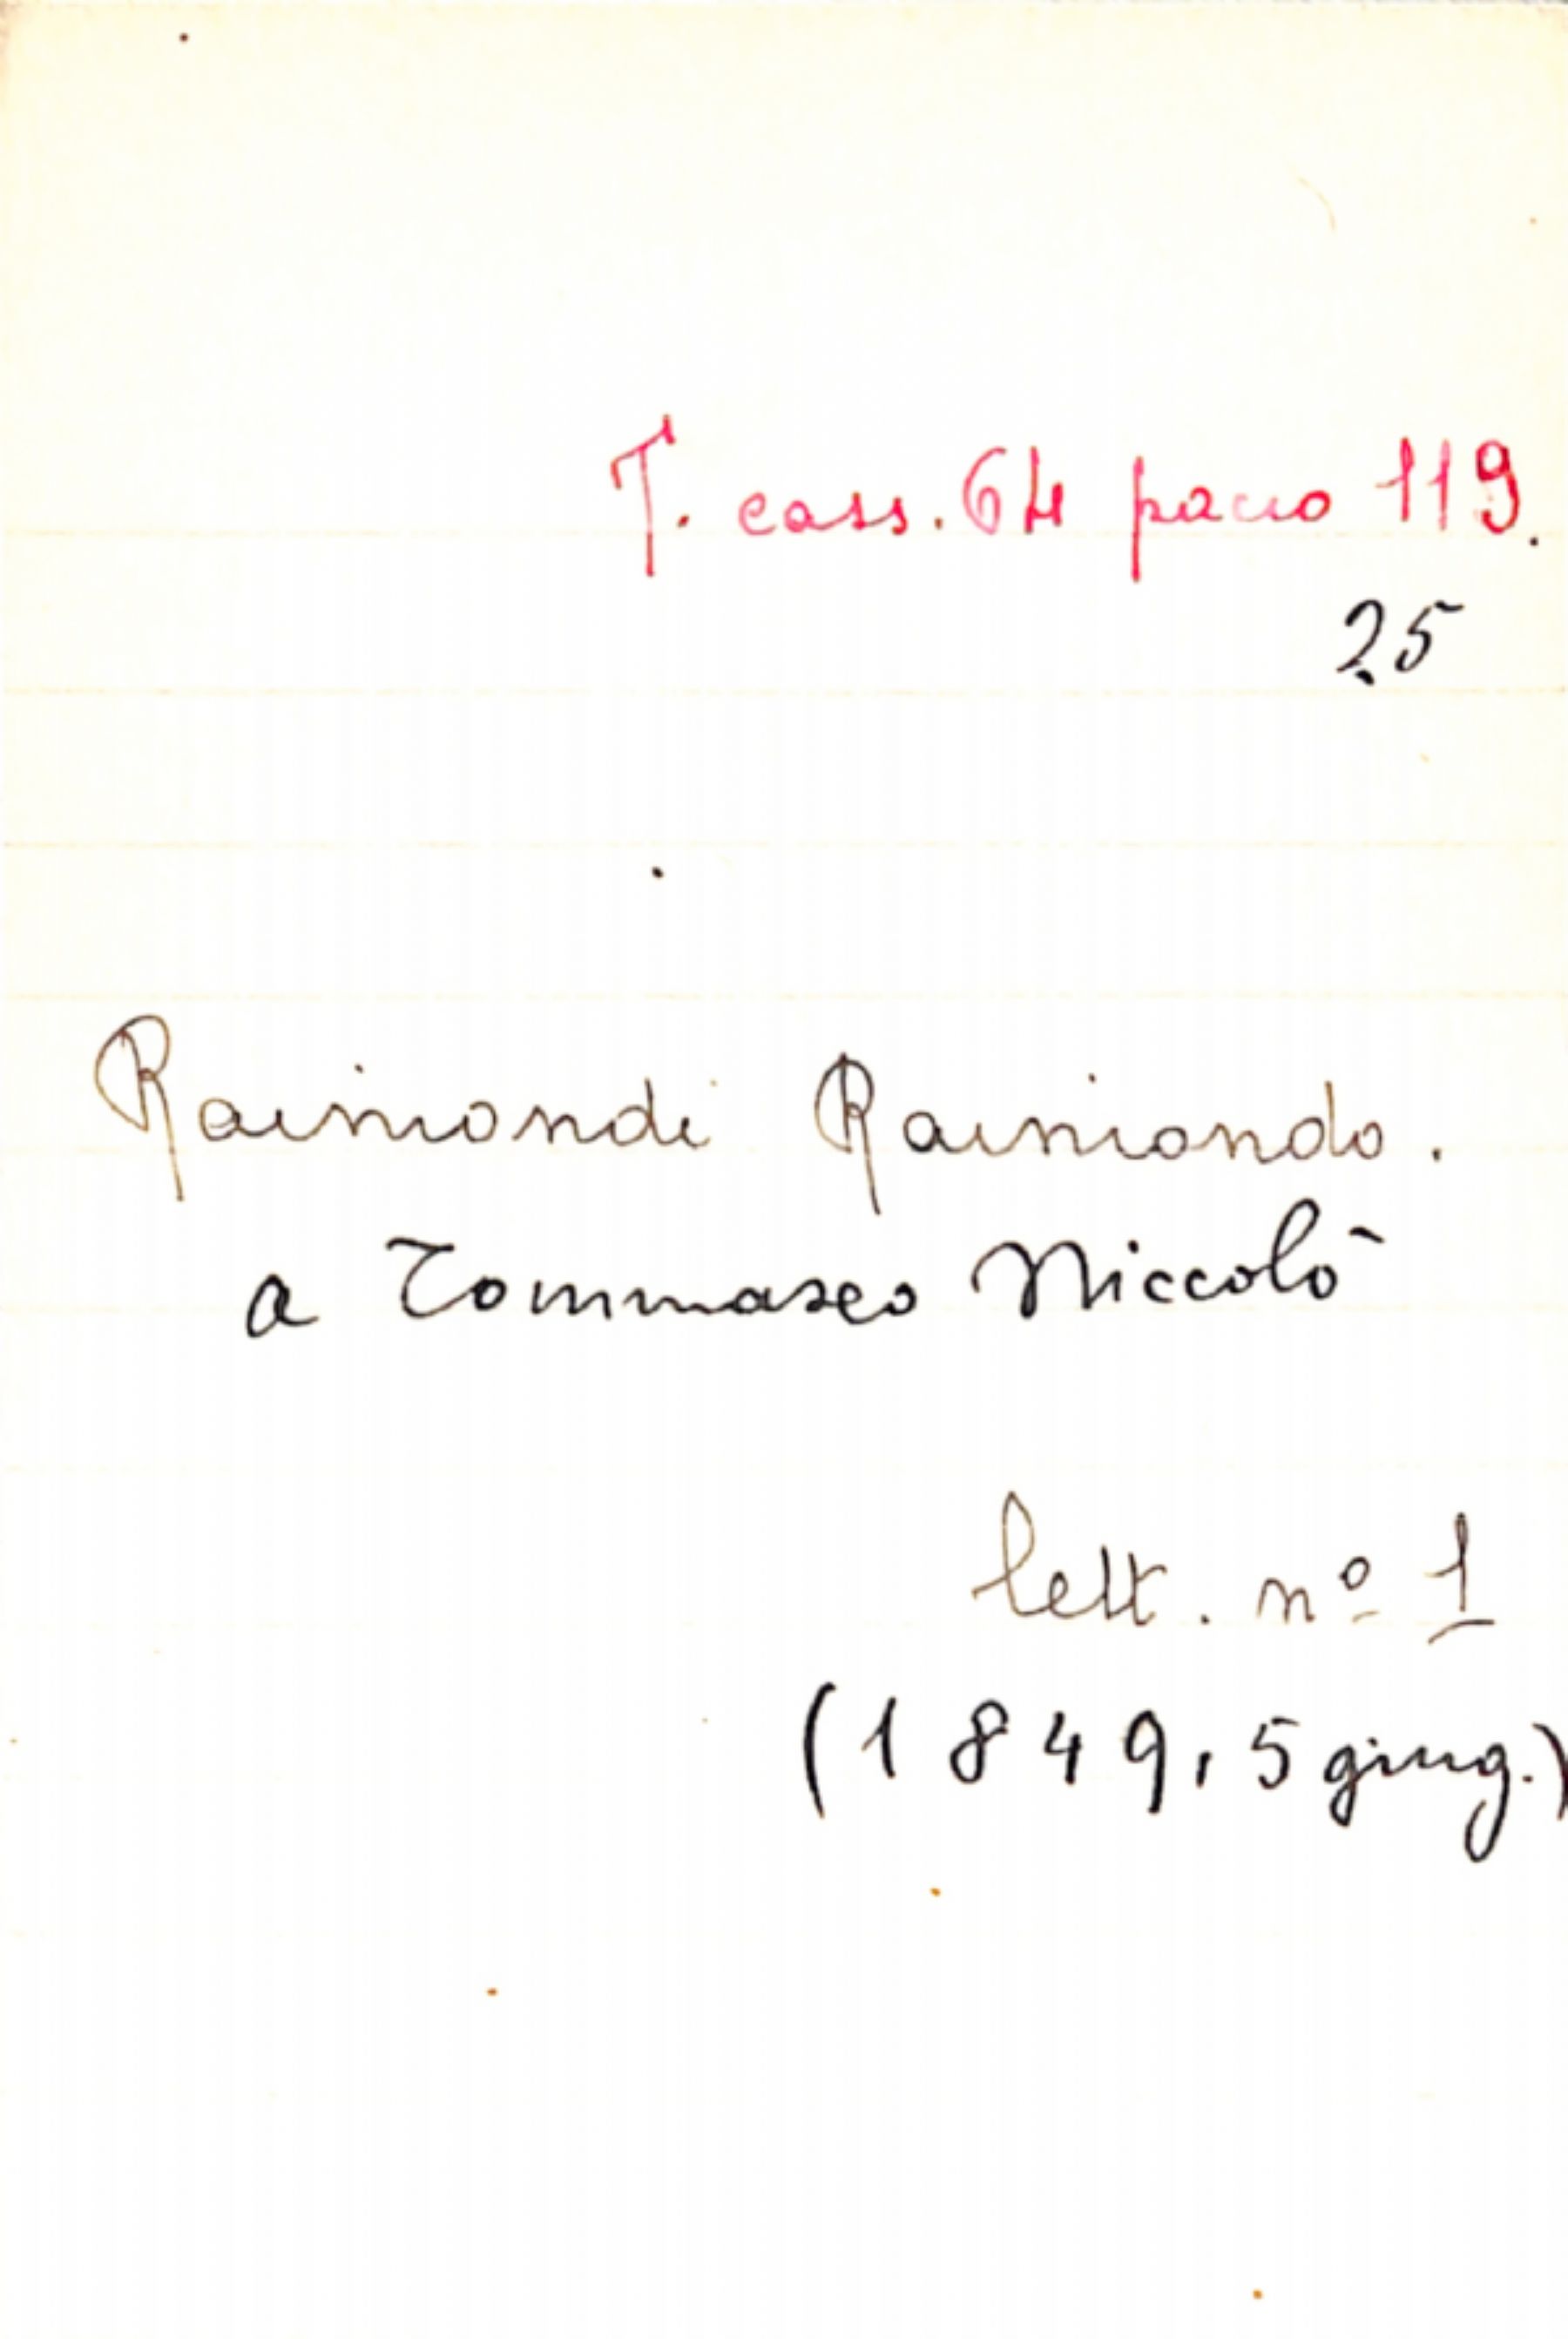 T. cass. 64 pacco 119.
25
Raimondi Raimondo.
a Tommaseo Niccolò
lett. nº 1
(1849, 5 giug.)